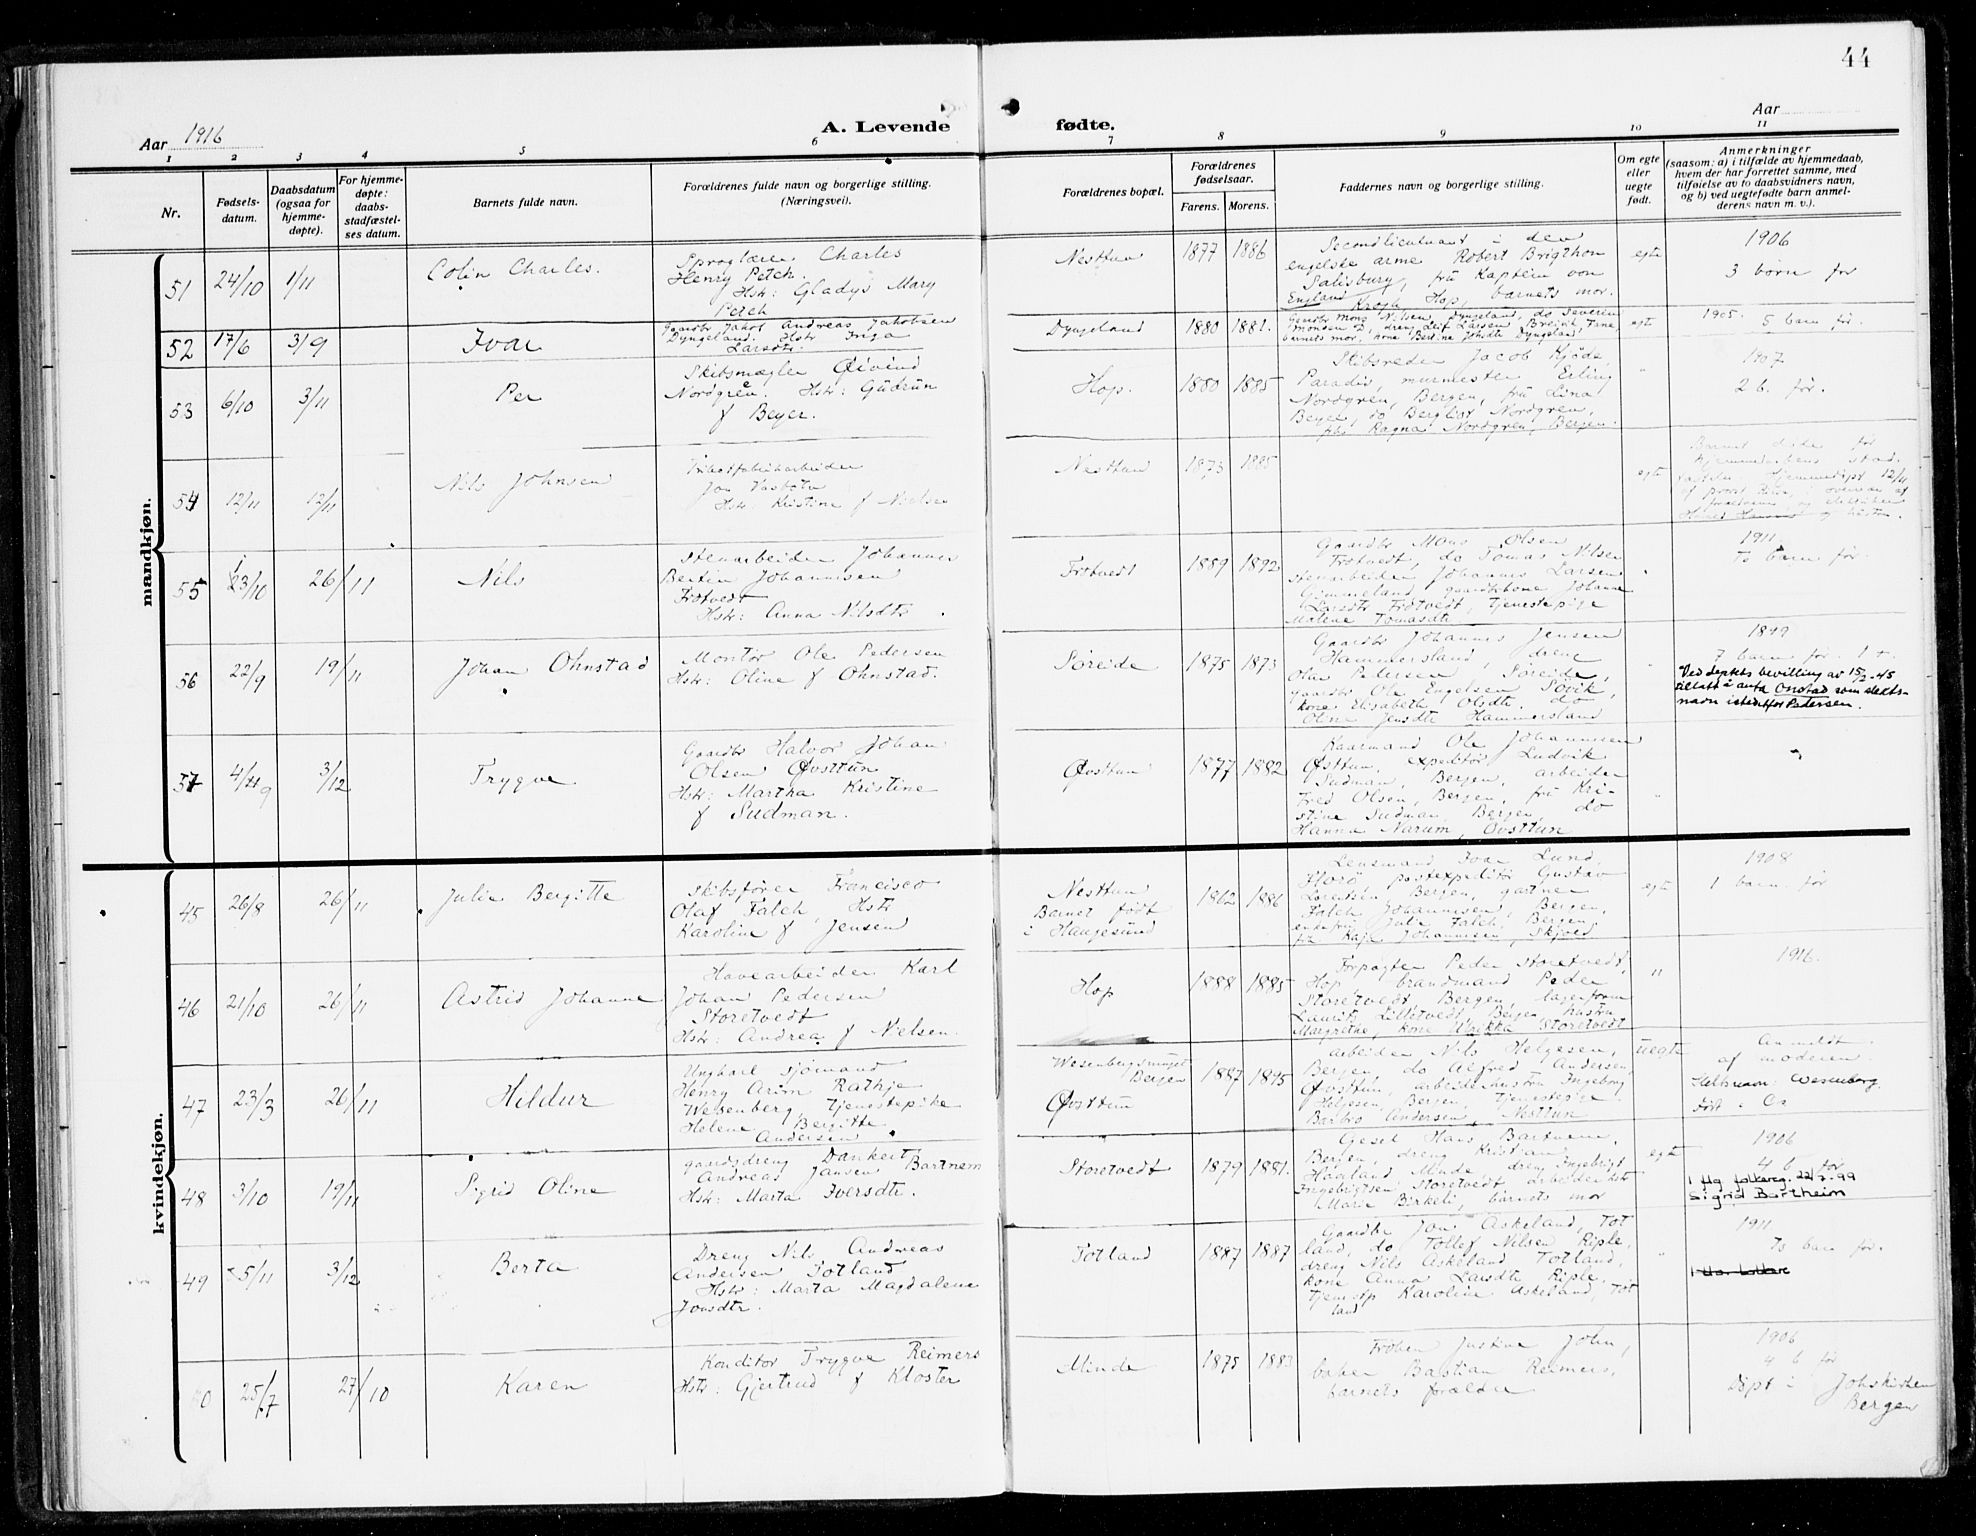 44
Aar 1916
A. Levende fødte.
Aar
1 2 3 4 5 6 7 8 9 10 11
Nr.
Fødsels-
datum.
Daabsdatum
(ogsaa for
hjemme-
døpte).
For hjemme-
døpte:
daabs-
stadfæstel-
ses datum.
Barnets fulde navn.
Forældrenes fulde navn og borgerlige stilling.
(Næringsvei).
Forældrenes bopæl.
Forældrenes
fødselsaar.
Farens. Morens.
Faddernes navn og borgerlige stilling.
Om egte
eller
uegte
født.
Anmerkninger
(saasom: a) i tilfælde av hjemmedaab,
hvem der har forrettet samme, med
tilføielse av to daabsvidners navn,
og b) ved uegtefødte barn anmel-
derens navn m. v.).
mandkjøn.
51 24/10 1/11 Colin Charles.
Sproglærer Charles
Henry Petch.
Hstr: Gladys Mary
Petch
Nesttun 1877 1886
Secondlieutnant i den
engelske arme Robert Brigthon
Salisbury, frü Kaptein von
England Krogh Hop, barnets mor.
egte
1906
3 børn før
52 17/6 3/9 Ivar
Gaardbr Jakob Andreas Jakobsen
Dyngeland. Hstr Inga
Larsdtr.
Dyngeland 1880 1881.
Gaardbr Mons Nilsen Dyngeland, do Severin
Monsen D, dreng Leif Larsen Breivik, Fane
barnets mor, kone Bertine Johsdtr Dyngeland
egte
1905. 5 barn før.
53 6/10 3/11 Per
Skibsmægler Øivind
Nordgren. Hstr: Güdrun
f Beyer.
Hop. 1880 1885
Skibsreder Jacob Kjøde,
Paradis, murmester Erling
Nordgren, Bergen, frü Lina
Beyer, do Bergliot Nordgren,
frk. Ragna Nordgren, Bergen.
"
1907
2 b. før.
54 12/11 12/11 Nils Johnsen
Trikotfabrikarbeider
Jon
Hstr: Kristine f Nielsen
Nesttun 1873 1885
egte
Barnet døde før
hjemmedaabens stad-
fæstelse. Hjemmedøpt 12/11
55 23/10 26/11 Nils
Stenarbeider Johannes
Bertin Johannesen
Frotvedt
Hstr: Anna Nilsdtr.
Frotvedt 1889 1892
Gaardbr Mons Olsen
Frotvedt, do Tomas Nilsen
stenarbeider Johannes Larsen
Gimmeland, gaardbrkone Johanne
Larsdtr Frotvedt, tjenestepige
Malene Tomasdtr
"
1911.
To barn før.
56 22/9 19/11 Johan Ohnstad
Montør Ole Pedersen
Hstr: Oline f Ohnstad.
Søreide 1875 1873
Gaardbr Johannes Jensen
Hammersland, dreng
Olse Pedersen Søreide,
gaardbr Ole Engelsen Søvik,
kone Elisabeth Olsdtr, do
Oline Jensdtr Hammersland
"
1899
7 barn før. 1 +.
Ved deptets bevilling av 15/2-45
tillatt å anta Onstad som slekts-
navn istedetfor Pedersen.
57 4/9 3/12 Trygve
Gaardbr Halvor Johan
Olsen Øvsttün
Hstr: Martha Kristine
f Sudman.
Øvsttun 1877 1882
Kaarmand Ole Johannesen
Østtun, expeditør Ludvik
Sudman, Bergen, arbeider
Fred Olsen, Bergen, frü Kri-
stine Sudman, Bergen, do
Hanna Narum, Øvsttün
"
kvindekjøn.
45 26/8 26/11 Julie Bergitte
Skibsfører Francisco
Olaf Falch, Hstr
Karoline f Jensen
Nesttun
Barnet født
i Haugesund
1862 1886
Lensmand Ivar Lund,
Florø postexpeditør Gustav
Lorentsen Bergen, gartner
Falch Johannesen, Bergen,
enkefrü Julie Falch, Bergen,
frk Kaja Johannesen, Skjold
egte
1908
1 barn før
46 21/10 26/11 Astrid Johanne
Havearbeider Karl
Johan Pedersen
Storetvedt
Hstr: Andrea f Nielsen.
Hop 1888 1885
Forpagter Peder Storetvedt,
Hop, brandmand Peder
Storetvedt, Bergen, lagerform
Laurits Lilletvedt, Bergen, hustru
Margrethe, kone Storetvedt
"
1916.
47 23/3 26/11 Hildur
Ungkarl sjømand
Henry Arim Rathje
Wesenberg, tjenestepike
Helene Bergitte
Andersen
Wesenbergsmuget
Bergen
Øvsttün
1887 1895
arbeider Nils Helgesen,
Bergen, do Alfred Andersen,
Øvsttun, arbeiderhustru Ingeborg
Helgesen, Bergen, tjenestepige
Barbro Andersen, Nesttun
uegte
Anmeldt
af moderen
Wesenberg.
Født i Os
48 3/10 19/11 Sigrid Oline
gaardsdreng Dankert
Andreas Jansen Bartnem
Hstr: Marta Iversdtr.
Storetvedt 1879 1881.
Gesel Hans Bartnem,
Bergen, dreng Kristian
Haaland Minde, dreng Ingebrigt
Ingebrigtsen Storetvedt arbeiderhstr
Marie Birkeli, barnets mor
egte
1906
4 b før
Sigrid Bartheim
49 5/11 3/12 Berta
Dreng Nils Andreas
Andersen Totland
Hstr: Marta Magdalene
Jonsdtr.
Totland 1887 1887
Gaardbr Jon Askeland, Tot
land, do Tollef Nilsen Riple,
dreng Nils Askeland Totland,
kone Anna Larsdtr Riple,
tjenestp Karoline Askeland, Tot
land
"
1911
To barn før.
0 25/7 27/10 Karen
Konditor Trygve Reimers
Hstr: Gjertrud f Kloster
Minde 1875 1883
Frøken Justine John,
baker Bastian Reimers,
barnets forældre
1906
4 b før
Døpt i Johskirken
Bergen